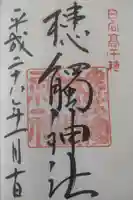 日向高千穂
槵觸神社
平成二十八年一月十日